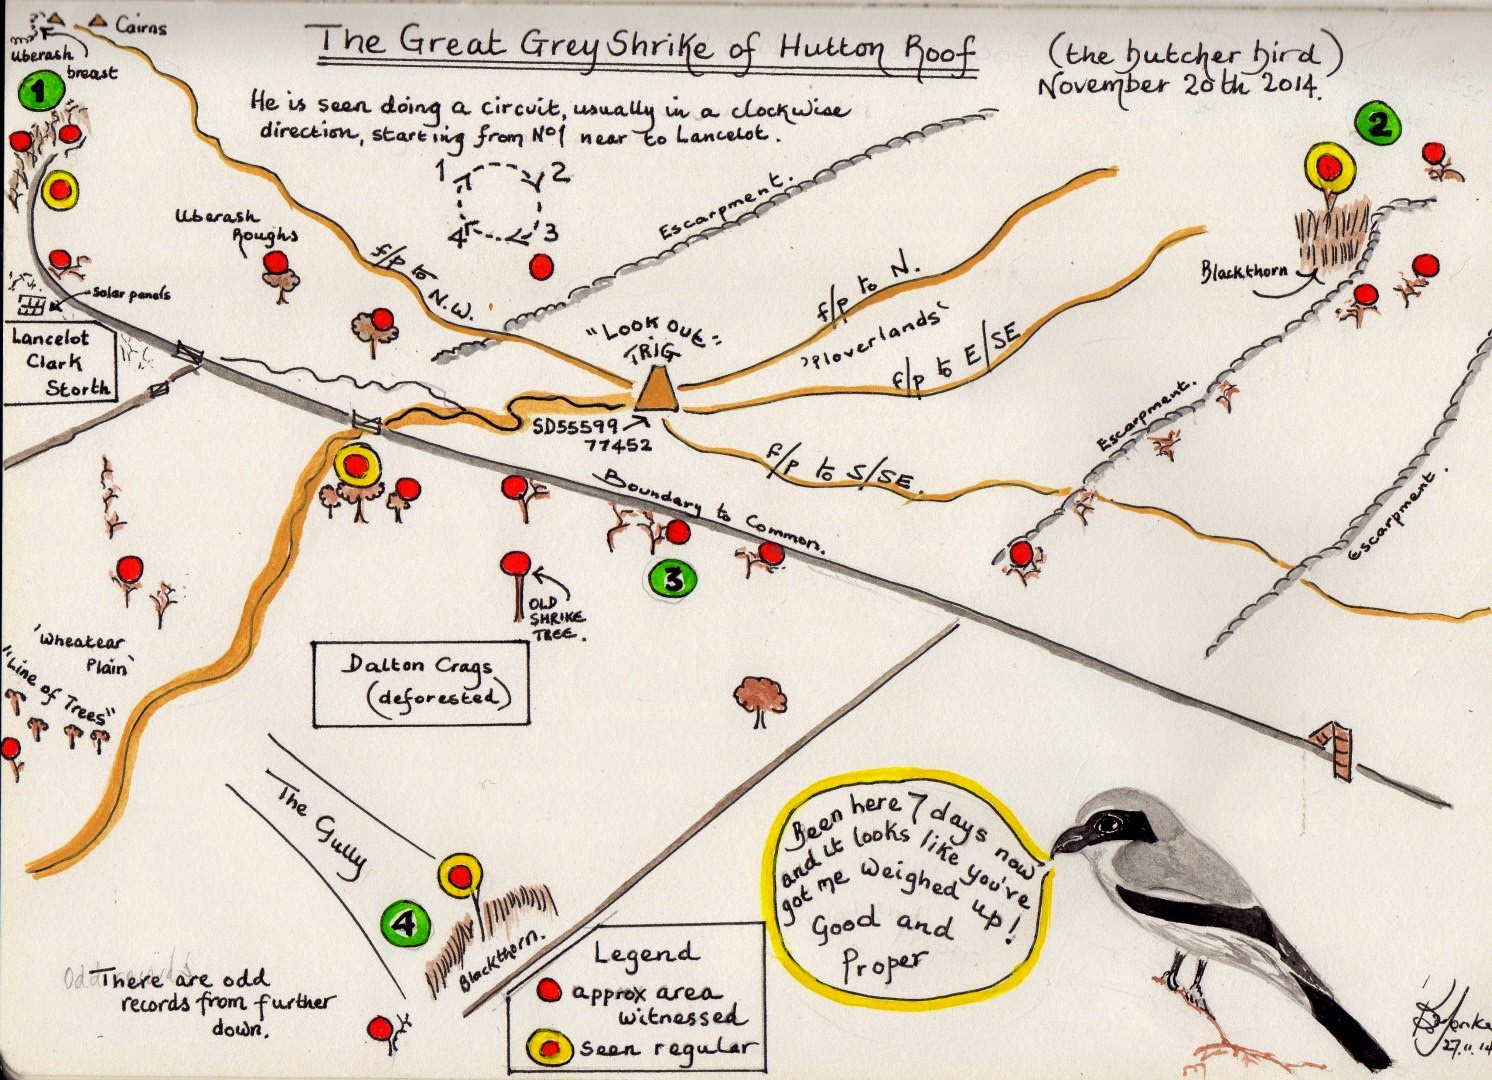 Cairns
Uberash
breast
1
The Great Grey Shrike of Hutton Roof
(the butcher bird)
November 20th 2014.
He is seen doing a circuit, usually in a clockwise
direction, starting from No1 near to Lancelot.
1 2
4 3
2
Escarpment.
Uberash
Roughs
f/p to
N.W.
f/p to N.
'Ploverlands'
f/p to E/SE
Blackthorn
solar panels
Lancelot
Clark
Storth
"Look out=
TRIG
SD55599
77452
f/p to S/SE.
Escarpment.
Escarpment.
Boundary to Common.
3
OLD
SHRIKE
TREE.
'Wheatear
Plain'
"Line of Trees"
Dalton Crags
(deforested)
The Gully
4
Blackthorn.
There are odd
records from further
down.
Legend
approx area
witnessed
seen regular
Been here 7 days now
and it looks like you've
got me weighed up!
Good and
Proper
27.11.14